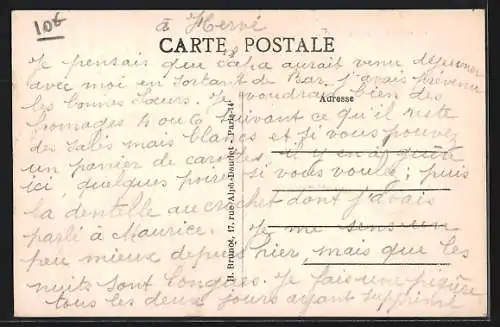 10f
à Hervé
CARTE POSTALE
Je pensais que papa aurait venu déjeuner
avec moi en sortant de Bar. J'avais prévenu
les bonnes Sœurs. Je voudrais bien des
Adresse
fromages 4 ou 6 suivant ce qu'il reste
des salés mais blancs et si vous pouvez
un panier de carottes il y en a guère
ici quelques poires si vous voulez; puis
la dentelle au crochet dont j'avais
parlé à Maurice. Je me sens un
peu mieux depuis hier, mais que les
nuits sont longues. Je fais une piqûre
tous les deux jours ayant supprimé
H. Brunot, 17, rue Alph-Daudet - Paris-14